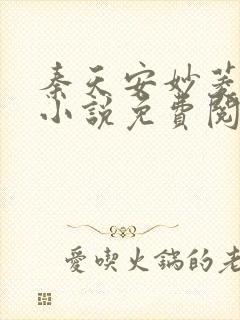 秦天安妙菱
小說免費閱
愛喫火鍋的老